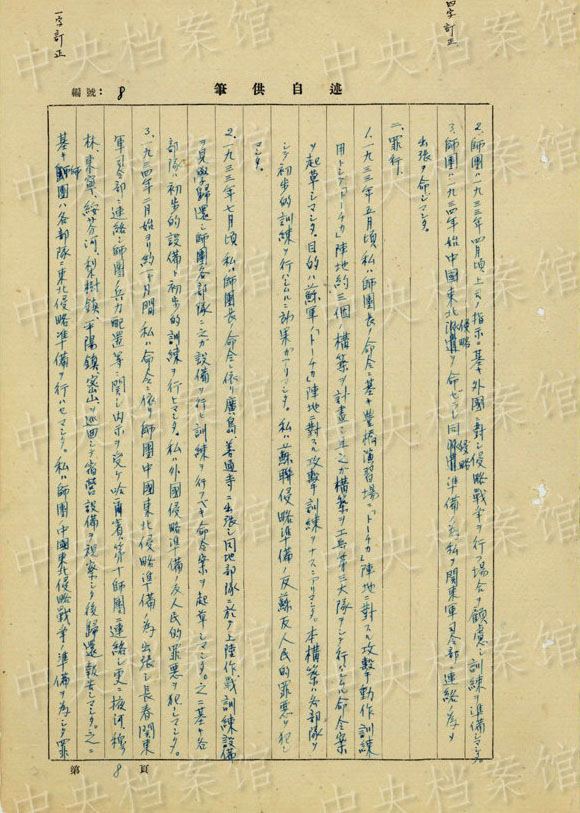 四字訂正
一字訂正
筆供自述
編號：8
2.師團ハ一九三三年四月頃上司ノ指示ニ基キ外國ニ對シ侵略戰爭ヲ行フ場合ヲ顧慮シ訓練ヲ準備シマシタ。
3.師團ハ一九三四年始中國東北侵略ヲ命セラレ同侵略準備ノ為私ヲ関東軍司令部ニ連絡ノ為メ
出張ヲ命シマシタ。
二、罪行。
1.一九三三年五月頃私ハ師團長ノ命令ニ基キ豊橋演習場ニ「トーチカ」陣地ニ對スル攻撃動作訓練
用トシテ「トーチカ」陣地約三個ノ構築ヲ計畫シ之カ構築ヲ工兵第三大隊ヲシテ行ハシムル命令案
ヲ起草シマシタ。目的ハ蘇軍「トーチカ」陣地ニ對スル攻撃訓練ヲナスニアリマシタ。本構築ハ各部隊ヲ
シテ初歩的訓練ヲ行ハシムルニ効果ガアリマシタ。私ハ蘇聯侵略準備ノ反蘇反人民的罪悪ヲ犯シ
マシタ。
2.一九三三年七月頃私ハ師團長ノ命令ニ依リ廣島、善通寺ニ出張シ同地部隊ニ於テ上陸作戰訓練設備
ヲ見學シ歸還シ師團各部隊ニ之カ設備ヲ行ヒ訓練ヲ行フヘキ命令案ヲ起草シマシタ。之ニ基キ各
部隊ハ初歩的設備ト初歩的訓練ヲ行ヒマシタ。私ハ外國侵略準備ノ反人民的罪悪ヲ犯シマシタ。
3.一九三四年二月始ヨリ約一ヶ月間私ハ命令ニ依リ師團中國東北侵略準備ノ為出張シ長春関東
軍司令部ニ連絡シ師團ノ兵力配置等ニ関シ内示ヲ受ケ哈爾賓第十師團ニ連絡シ更ニ掖河、穆
林、東寧、綏芬河、梨樹鎮、平陽鎮、密山ヲ巡回シテ宿營設備ヲ視察シタ後歸還報告シマシタ。之ニ
基キ師團ハ各部隊ニ東北侵略準備ヲ行ハセマシタ。私ハ師團ノ中國東北侵略戰爭ノ準備ヲ為シタ罪
第8頁
中央档案馆